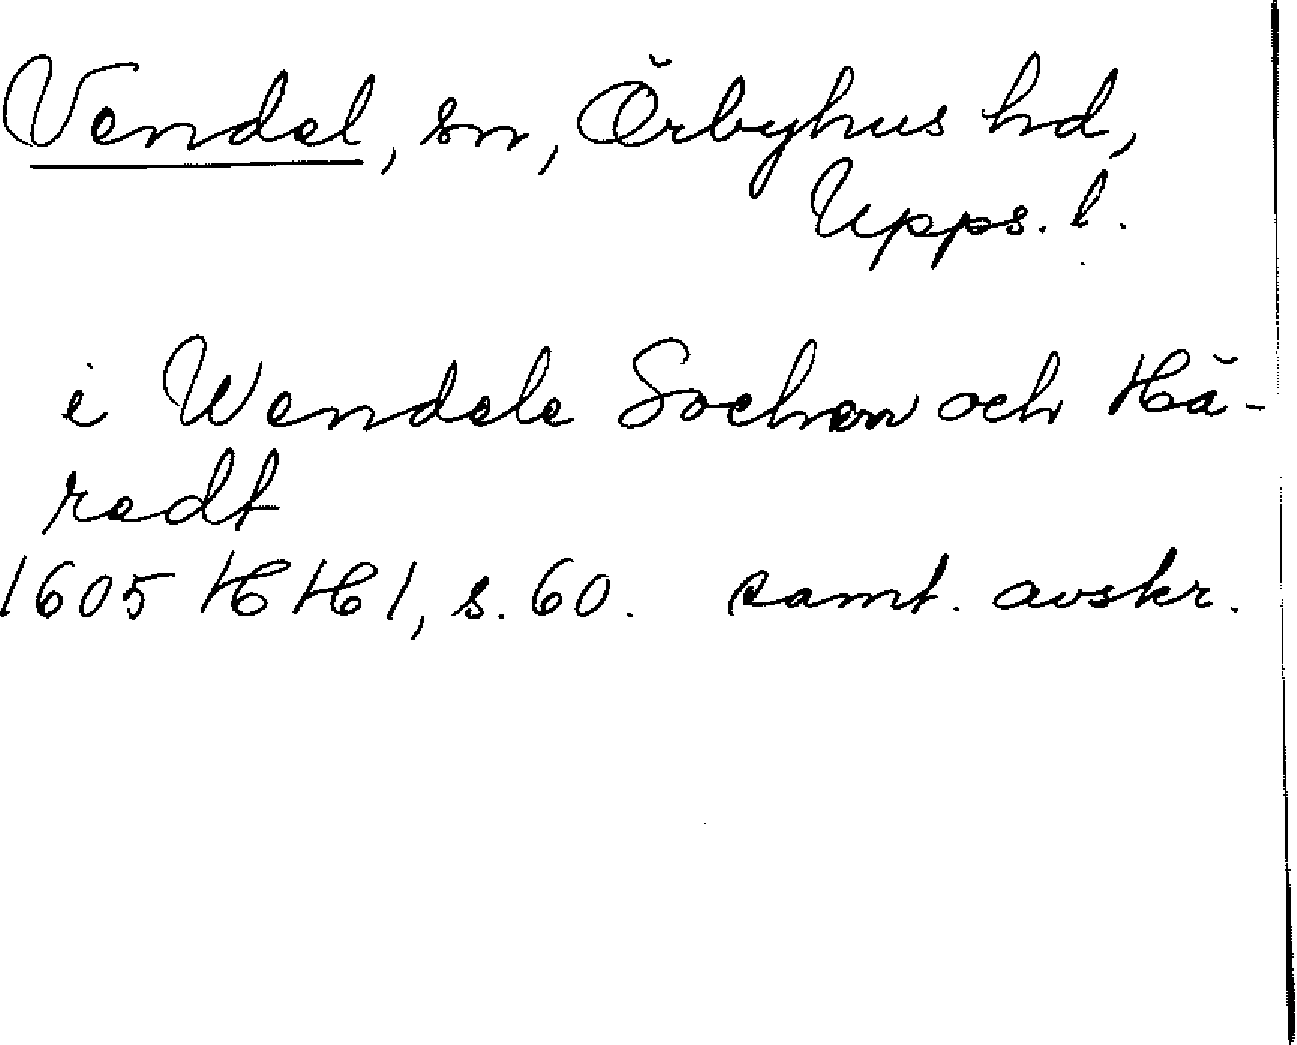 Vendel, sn, Örbyhus hd,
Upps. l.
i Wendele Sochen och Hä-
redt
1605 HH 1, s. 60. samt. avskr.